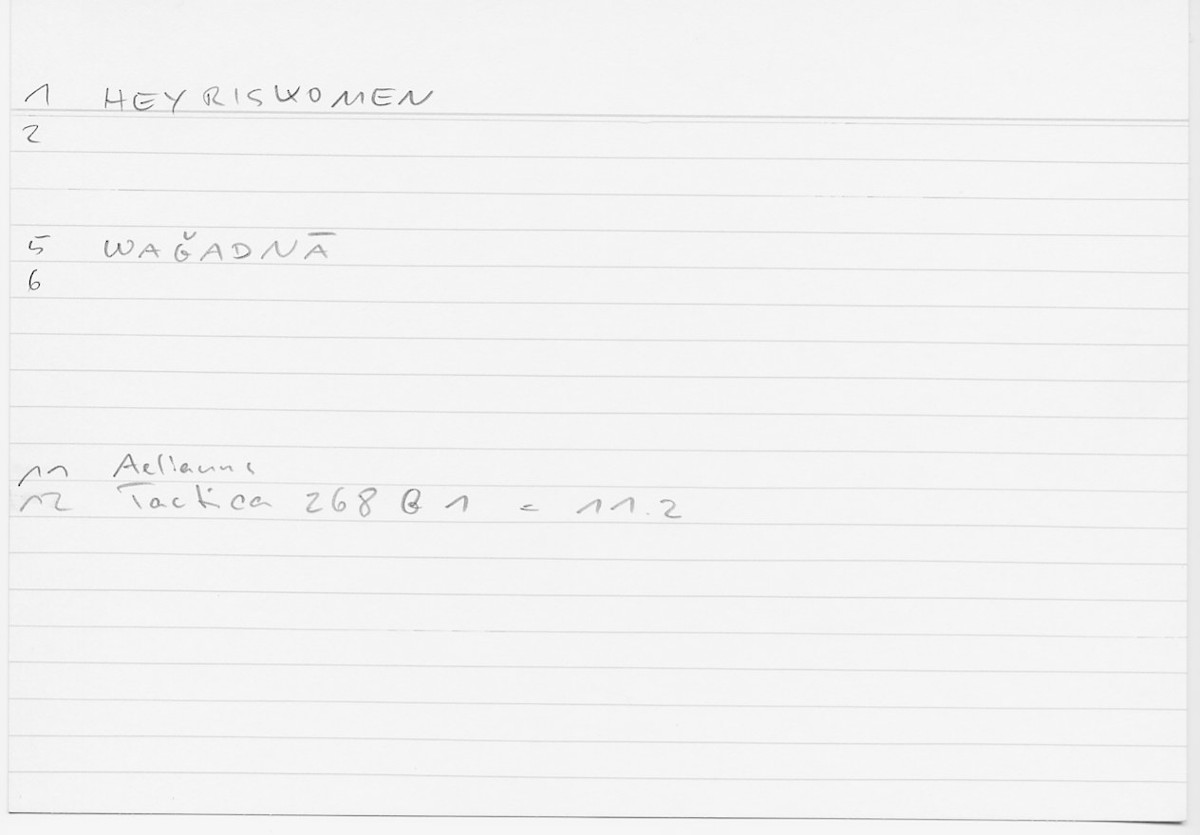 1 HEYRISKOMEN
2
5 WAǦADNĀ
6
11 Aelianus
12 Tactica 268 B 1 = 11.2